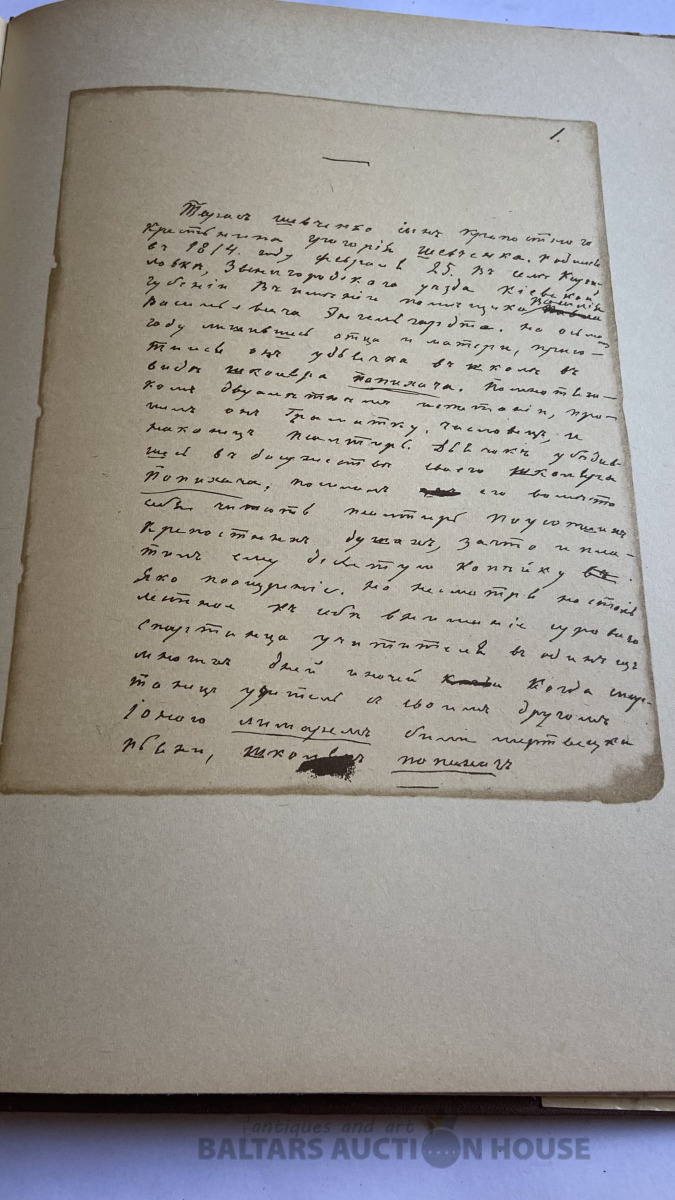 1.
Тарасъ Шевченко сынъ крепостного
крестьянина Григорія Шевченка. Родился
въ 1814. году февраля 25. Въ селѣ Кири-
ловкѣ, Звенигородского уѣзда Кіевской
губеніи Въ имѣніи помѣщика Василія
Васильевича Энгельгардта. на осьмом
году лишившись отца и матери, прию-
тился онъ у дьячка въ школѣ въ
видѣ школяра попихача.
комъ двухлѣтнемъ испытаніи, про-
шелъ онъ Граматку, часловець, и
наконецъ Псалтырь. Дьячокъ убѣдив-
шсь въ досужествѣ своего школяра
Попихача, посылалъ его вомѣсто
себя читать псалтырь поусопшихъ
крепостныхъ душахъ, зачто и пла-
тилъ ему десятую копѣйку
Яко поощреніе. Но несмотря на столь
лестное къ себѣ вниманіе суроваго
спартанца учителя въ одинъ изъ
многихъ дней и ночей когда спар-
танецъ учитель съ своимъ другомъ
Іоною лимаремъ были мертвецки
пьяни, школяръ попихачъ
antiques and art
BALTARS AUCTION HOUSE